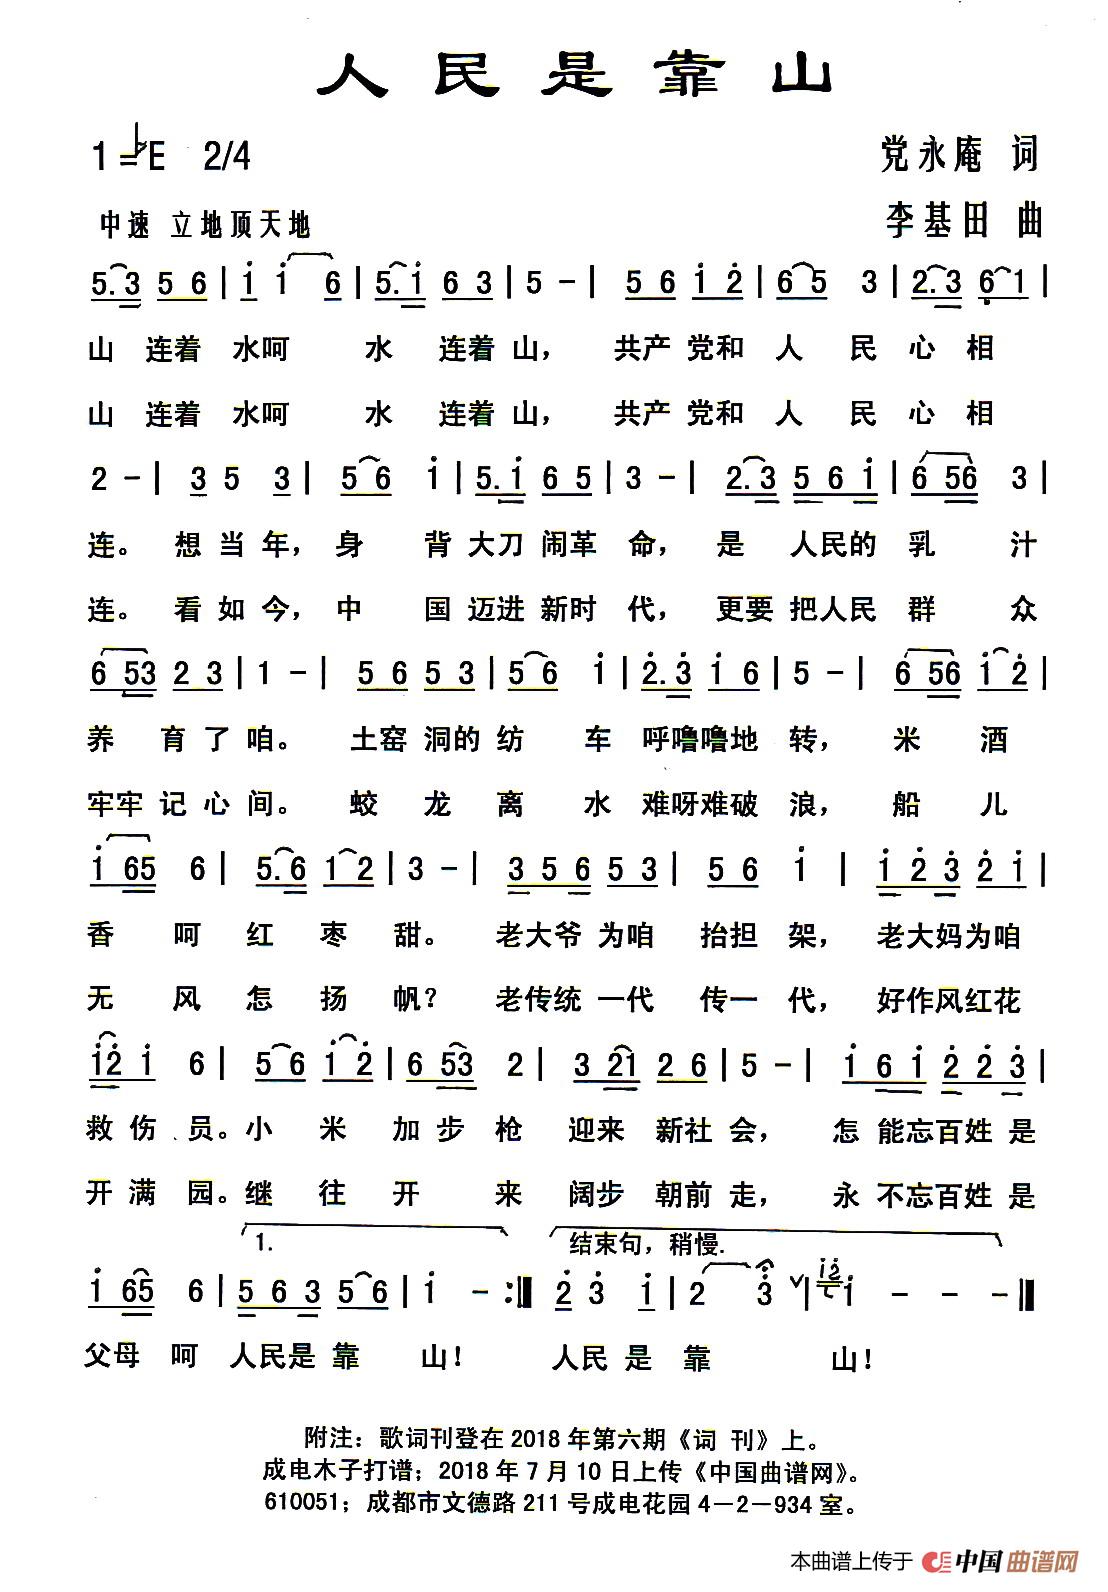 人民是靠山
1=♭E 2/4 党永庵 词
中速 立地顶天地 李基田 曲
5. 3 5 6 | i i 6 | 5. i 6 3 | 5 - | 5 6 i 2 | 6 5 3 | 2. 3 6 1 |
山 连着 水呵 水 连着山， 共产党和 人 民 心 相
山 连着 水呵 水 连着山， 共产党和 人 民 心 相
2 - | 3 5 3 | 5 6 i | 5. i 6 5 | 3 - | 2. 3 5 6 i | 6 56 3 |
连。 想当年， 身 背 大刀 闹革 命， 是 人民的 乳 汁
连。 看如今， 中 国 迈进 新时 代， 更要 把人民 群 众
6 53 2 3 | 1 - | 5 6 5 3 | 5 6 i | 2. 3 i 6 | 5 - | 6 56 i 2 |
养 育了咱。 土窑 洞的 纺 车 呼噜噜地 转， 米 酒
牢牢 记心间。 蛟 龙 离 水 难呀难破 浪， 船 儿
i 65 6 | 5. 6 1 2 | 3 - | 3 5 6 5 3 | 5 6 i | i 2 3 2 i |
香 呵 红 枣 甜。 老大爷 为咱 抬担 架， 老大妈为咱
无 风 怎 扬 帆？ 老传统 一代 传一 代， 好作风红花
i2 i 6 | 5 6 i 2 | 6 53 2 | 3 21 2 6 | 5 - | i 6 i 2 2 3 |
救 伤 员。 小 米 加 步 枪 迎来 新社 会， 怎 能忘百姓是
开 满 园。 继 往 开 来 阔步 朝前 走， 永 不忘百姓是
1. 结束句，稍慢.
i 65 6 | 5 6 3 5 6 | i - :‖ 2 3 i | 2 3 ∨ | i2 i - - - ‖
父母 呵 人民是 靠 山！ 人民 是 靠 山！
附注：歌词刊登在2018年第六期《词 刊》上。
成电木子打谱；2018年7月10日上传《中国曲谱网》。
610051；成都市文德路211号成电花园4－2－934室。
本曲谱上传于 中国曲谱网